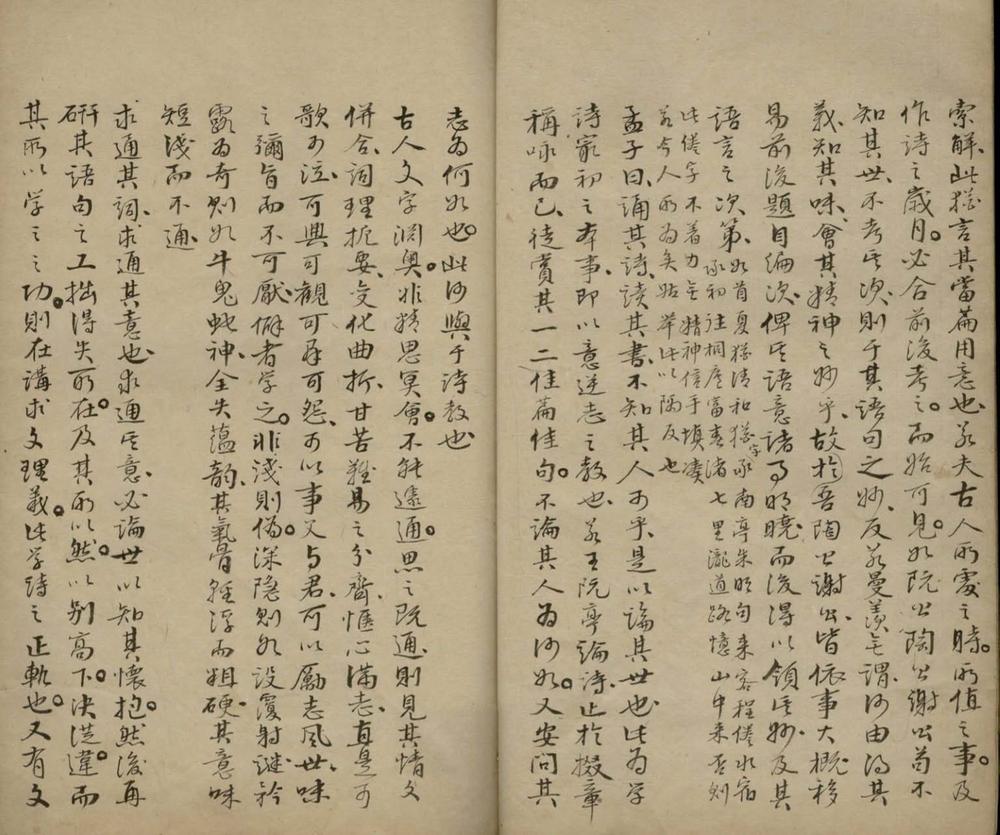 索解、此猶言其當篇用意也、若夫古人所處之時。所值之事。及
作詩之歲月。必合前後考之。而始可見。如阮公陶公謝公苟不
知其世、不考其次、則于其語句之妙、反若曼羨無謂、何由得其
義、知其味、會其精神之妙乎、故於吾陶公謝公、皆依事大概移
易前後題目編次、俾其語意諸事明曉、而後得以領其妙、及其
語言之次第、如首夏猶清和猶字承南亭朱明句來客程倦水宿
承初往桐廬富春渚七里瀧道路憶山中來否則
此倦字不着力無精神信手填湊
若今人所為矣姑舉此以隅反也
孟子曰、誦其詩、讀其書、不知其人可乎、是以論其世也、此為學
詩家初之本事、即以意逆志之教也、若王阮亭論詩、止於掇章
稱咏而已、徒賞其一二佳篇佳句。不論其人為何如。又安問其
志為何如也。此何與于詩教也
古人文字淵奧。非精思冥會。不能遽通。思之既通、則見其情文
併合、詞理扼要、變化曲折、甘苦難易之分齊、愜心滿志、直是可
歌可泣、可興可觀可羣可怨、可以事父与君、可以勵志風世、味
之彌旨而不可厭、僻者學之。非淺則偽。深隱則如設覆射謎、矜
露為奇則如牛鬼蛇神、全失蘊韻、其氣骨輕浮而粗硬、其意味
短淺而不通
求通其詞、求通其意也、求通其意、必論世以知其懷抱。然後再
研其語句之工拙得失所在。及其所以然。以别高下。決從違。而
其所以學之之功。則在講求文理義。此學詩之正軌也。又有文